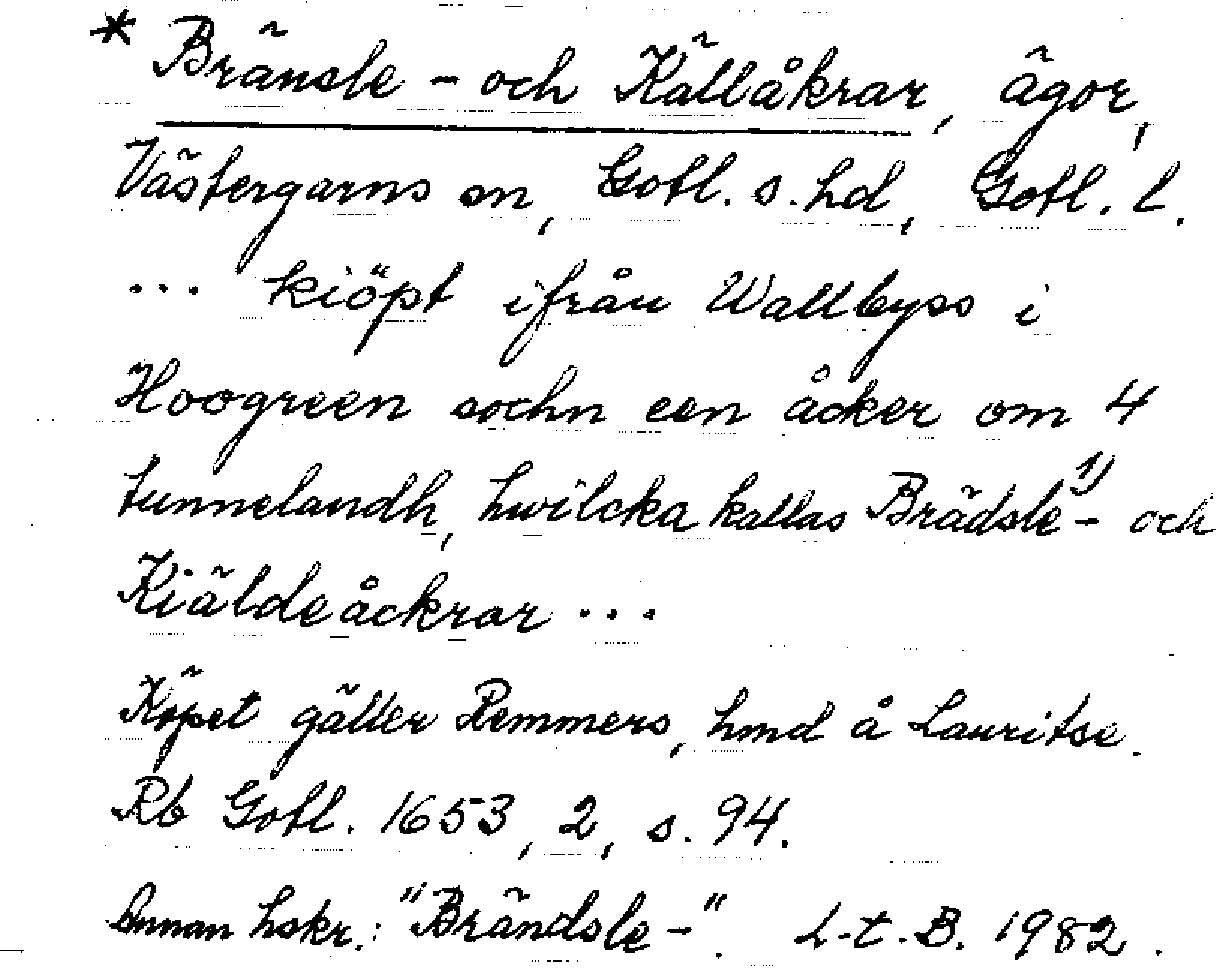 * Bränsle- och Källåkrar, ägor,
Västergarns sn, Gotl. s. hd, Gotl. l.
... kiöpt ifrån Wallbyss i
Hoogreen sochn een åcker om 4
tunnelandh, hwilcka kallas Brädsle¹⁾- och
Kiäldeåckrar ...
Köpet gäller Remmers, hmd å Lauritse.
Rb Gotl. 1653, 2, s. 94.
Annan hskr.: "Brändsle-". L-t. B. 1982.